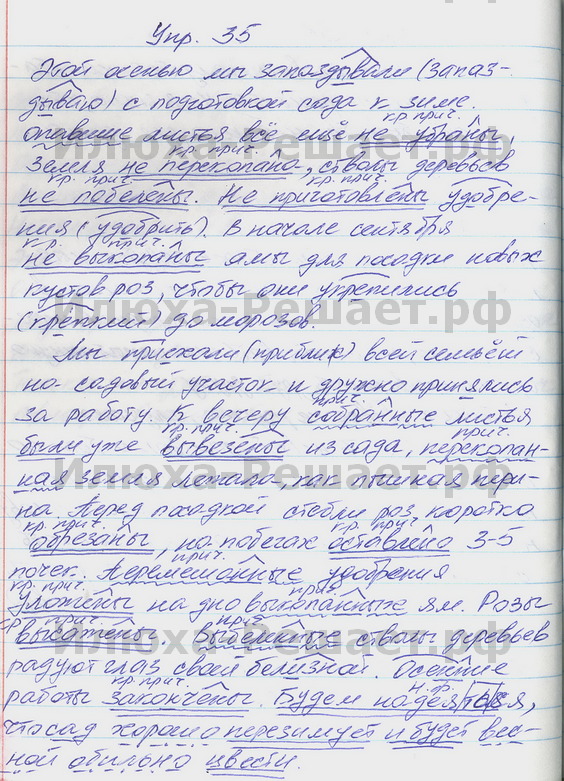 Упр. 35
Этой осенью мы запаздывали (запаз-
дываю) с подготовкой сада к зиме.
кр. прич.
опавшие листья всё ещё не убраны,
кр. прич.
земля не перекопана, стволы деревьев
кр. прич. кр. прич.
не побелены. Не приготовлены удобре-
ния (удобрить). В начале сентября
кр. прич.
не выкопаны ямы для посадки новых
кустов роз, чтобы они укрепились
(крепкий) до морозов.
Мы приехали (приближ) всей семьёй
на садовый участок и дружно принялись
прич.
за работу. К вечеру собранные листья
кр. прич. прич.
были уже вывезены из сада, перекопан-
ная земля лежала, как пышная пери-
на. Перед посадкой стебли роз коротко
кр. прич. кр. прич.
обрезаны, на побегах оставлено 3-5
прич.
почек. Перемешанные удобрения
кр. прич. прич.
уложены на дно выкопанных ям. Розы
кр. прич. прич.
высажены. Выбеленные стволы деревьев
радуют глаз своей белизной. Осенние
кр. прич. н.ф.
работы закончены. Будем надеяться,
что сад хорошо перезимует и будет вес-
ной обильно цвести.
Илюха-Решает.рф
Илюха-Решает.рф
Илюха-Решает.рф
Илюха-Решает.рф